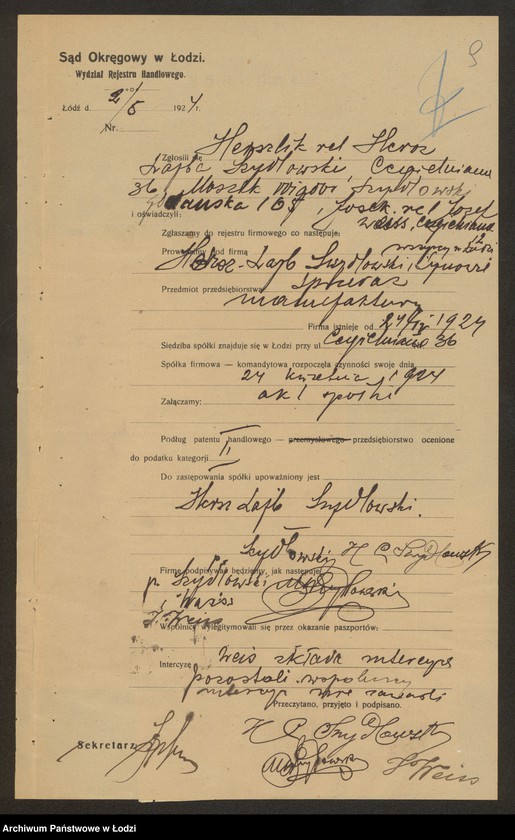 9
Sąd Okręgowy w Łodzi.
Wydział Rejestru Handlowego.
Łódź d. 2/5 1924.
Nr.
Zgłosili się Herszlik vel Hersz
Lajba Szydłowski, Cegielniana
36, Moszek Szydłowski
Gdańska 105, Josek vel Józef
i oświadczyli: Weiss, Cegielniana
Zgłaszamy do rejestru firmowego co następuje:
wszyscy w Łodzi
Prowadzimy pod firmą
Hersz-Lajb Szydłowski i Synowie
Przedmiot przedsiębiorstwa: sprzedaż
manufaktury
Firma istnieje od 24/IV 1924
Siedziba spółki znajduje się w Łodzi przy ul. Cegielniana 36
Spółka firmowa — komandytowa rozpoczęła czynności swoje dnia
24 kwietnia 1924
Załączamy: akt spółki
Podług patentu handlowego — przemysłowego przedsiębiorstwo ocenione
do podatku kategorji II
Do zastępowania spółki upoważniony jest
Hersz Lajb Szydłowski.
Szydłowski
Firmę podpisywać będziemy, jak następuje:
p. Szydłowski
i Weiss
J. Weiss
Wspólnicy wylegitymowali się przez okazanie paszportów:
Intercyzę Weiss składa intercyzę
pozostali wspólnicy
intercyz nie zawarli
Przeczytano, przyjęto i podpisano.
Sekretarz
Weiss
Archiwum Państwowe w Łodzi